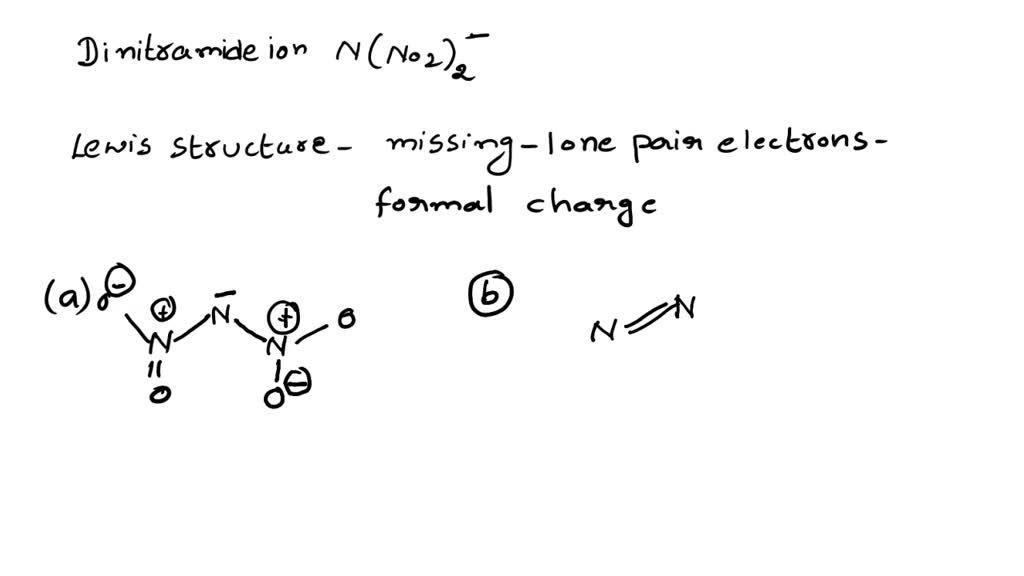 Dinitramide ion N(NO2)2−
Lewis structure - missing - lone pair electrons -
formal charge
(a) O ⊖ N ⊕ N − N ⊕ O
O O ⊖
ⓑ N = N